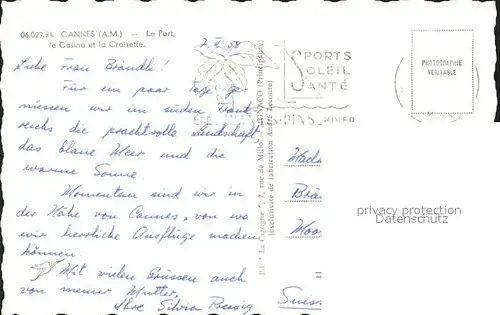 06.029.54 CANNES (A.M.) - Le Port,
le Casino et la Croisette.
Liebe Frau Brändle!
Für ein paar Tage ge-
niessen wir im süden Frank
reichs die prachtvolle Landschaft
das blaue Meer und die
warme Sonne.
Momentan sind wir in
der Nähe von Cannes, von wo
wir herrliche Ausflüge machen
können.
Mit vielen Grüssen auch
von meiner Mutter,
Ihre Silvia
SPORTS
SOLEIL
SANTÉ
PINS
PHOTOGRAPHIE
VÉRITABLE
Ed. "La Cigogne", 7, rue de Millo, MONACO (Principauté)
(exclusivité de fabrication André Leconte)
Mada
Brä
Moo
Suis
privacy protection
Datenschutz